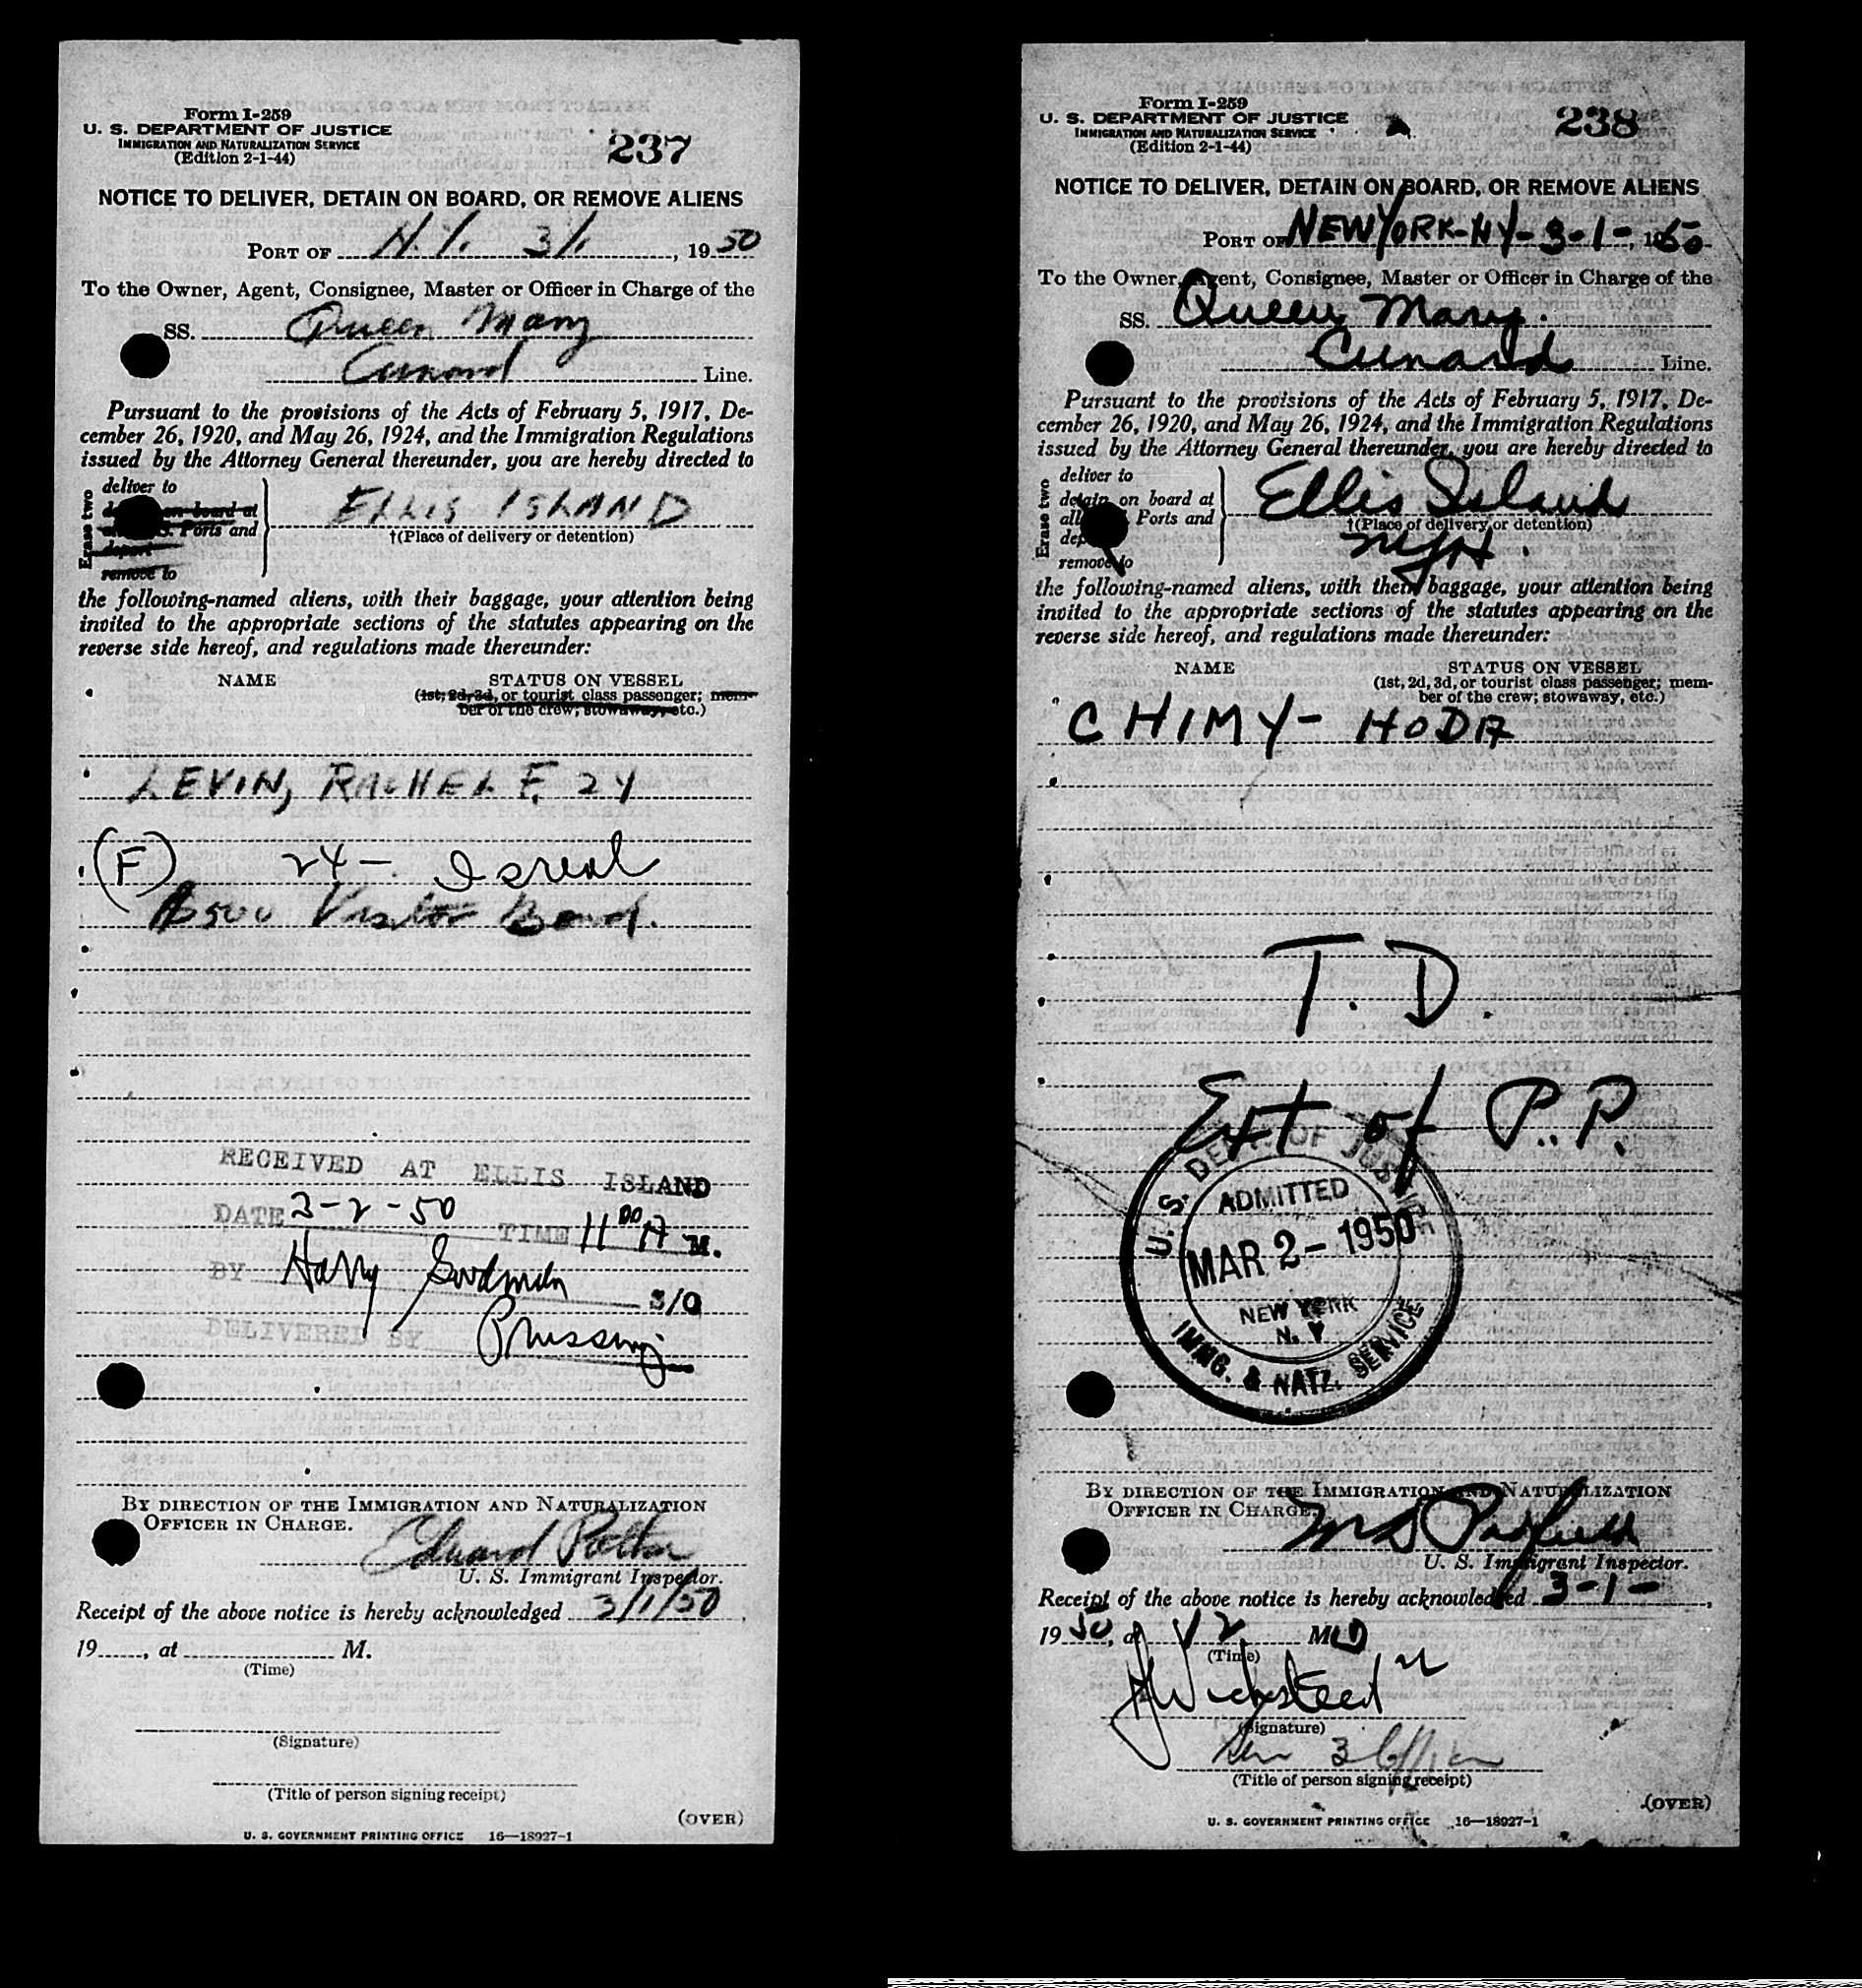 Form I-259
U. S. DEPARTMENT OF JUSTICE
IMMIGRATION AND NATURALIZATION SERVICE
(Edition 2-1-44)
237
NOTICE TO DELIVER, DETAIN ON BOARD, OR REMOVE ALIENS
PORT OF N.Y. 3/1, 1950
To the Owner, Agent, Consignee, Master or Officer in Charge of the
SS. Queen Mary
Cunard Line.
Pursuant to the provisions of the Acts of February 5, 1917, De-
cember 26, 1920, and May 26, 1924, and the Immigration Regulations
issued by the Attorney General thereunder, you are hereby directed to
Erase two
deliver to
on board at
Ports and
deport
remove to
ELLIS ISLAND
†(Place of delivery or detention)
the following-named aliens, with their baggage, your attention being
invited to the appropriate sections of the statutes appearing on the
reverse side hereof, and regulations made thereunder:
NAME STATUS ON VESSEL
(1st, 2d, 3d, or tourist class passenger; mem-
ber of the crew; stowaway, etc.)
LEVIN, RACHEL F. 24
(F) 24 - Isreal
$500 Visitor Bond.
RECEIVED AT ELLIS ISLAND
DATE 3-2-50 TIME 11 00 A M.
BY Harry Goodman S/O
DELIVERED BY
BY DIRECTION OF THE IMMIGRATION AND NATURALIZATION
OFFICER IN CHARGE.
Edward
U. S. Immigrant Inspector.
Receipt of the above notice is hereby acknowledged 3/1/50,
19, at M.
(Time)
(Signature)
(Title of person signing receipt)
(OVER)
U. S. GOVERNMENT PRINTING OFFICE 16—18927-1
Form I-259
U. S. DEPARTMENT OF JUSTICE
IMMIGRATION AND NATURALIZATION SERVICE
(Edition 2-1-44)
238
NOTICE TO DELIVER, DETAIN ON BOARD, OR REMOVE ALIENS
PORT OF NEW YORK-NY-3-1-, 1950
To the Owner, Agent, Consignee, Master or Officer in Charge of the
SS. Queen Mary.
Cunard Line.
Pursuant to the provisions of the Acts of February 5, 1917, De-
cember 26, 1920, and May 26, 1924, and the Immigration Regulations
issued by the Attorney General thereunder, you are hereby directed to
Erase two
deliver to
detain on board at
all Ports and
remove to
Ellis Island
†(Place of delivery or detention)
NYH.
the following-named aliens, with their baggage, your attention being
invited to the appropriate sections of the statutes appearing on the
reverse side hereof, and regulations made thereunder:
NAME STATUS ON VESSEL
(1st, 2d, 3d, or tourist class passenger; mem-
ber of the crew; stowaway, etc.)
CHIMY- HODA
T. D.
Ext of P.P.
U.S. DEPT. OF JUSTICE
ADMITTED
MAR 2 - 1950
NEW YORK
N. Y.
IMMG. & NATZ. SERVICE
BY DIRECTION OF THE IMMIGRATION AND NATURALIZATION
OFFICER IN CHARGE.
U. S. Immigrant Inspector.
Receipt of the above notice is hereby acknowledged 3-1-,
1950, at M
(Time)
Wicksteed
(Signature)
(Title of person signing receipt)
(OVER)
U. S. GOVERNMENT PRINTING OFFICE 16—18927-1